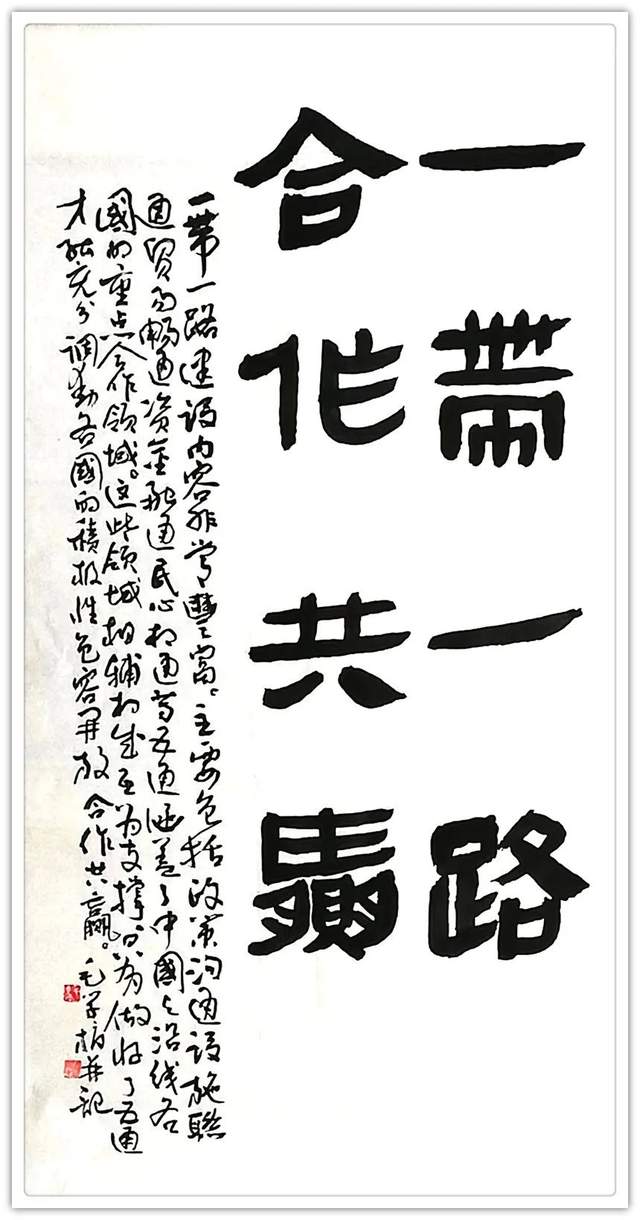 一帶一路
合作共贏
一帶一路建设内容非常豐富。主要包括政策沟通设施聯
通貿易暢通资金融通民心相通等五通涵盖了中國与沿线各
國的重点合作领域。这些领域相辅相成互为支撑只有做好了五通
才能充分调動各國的積极性包容开放 合作共赢。毛学并記